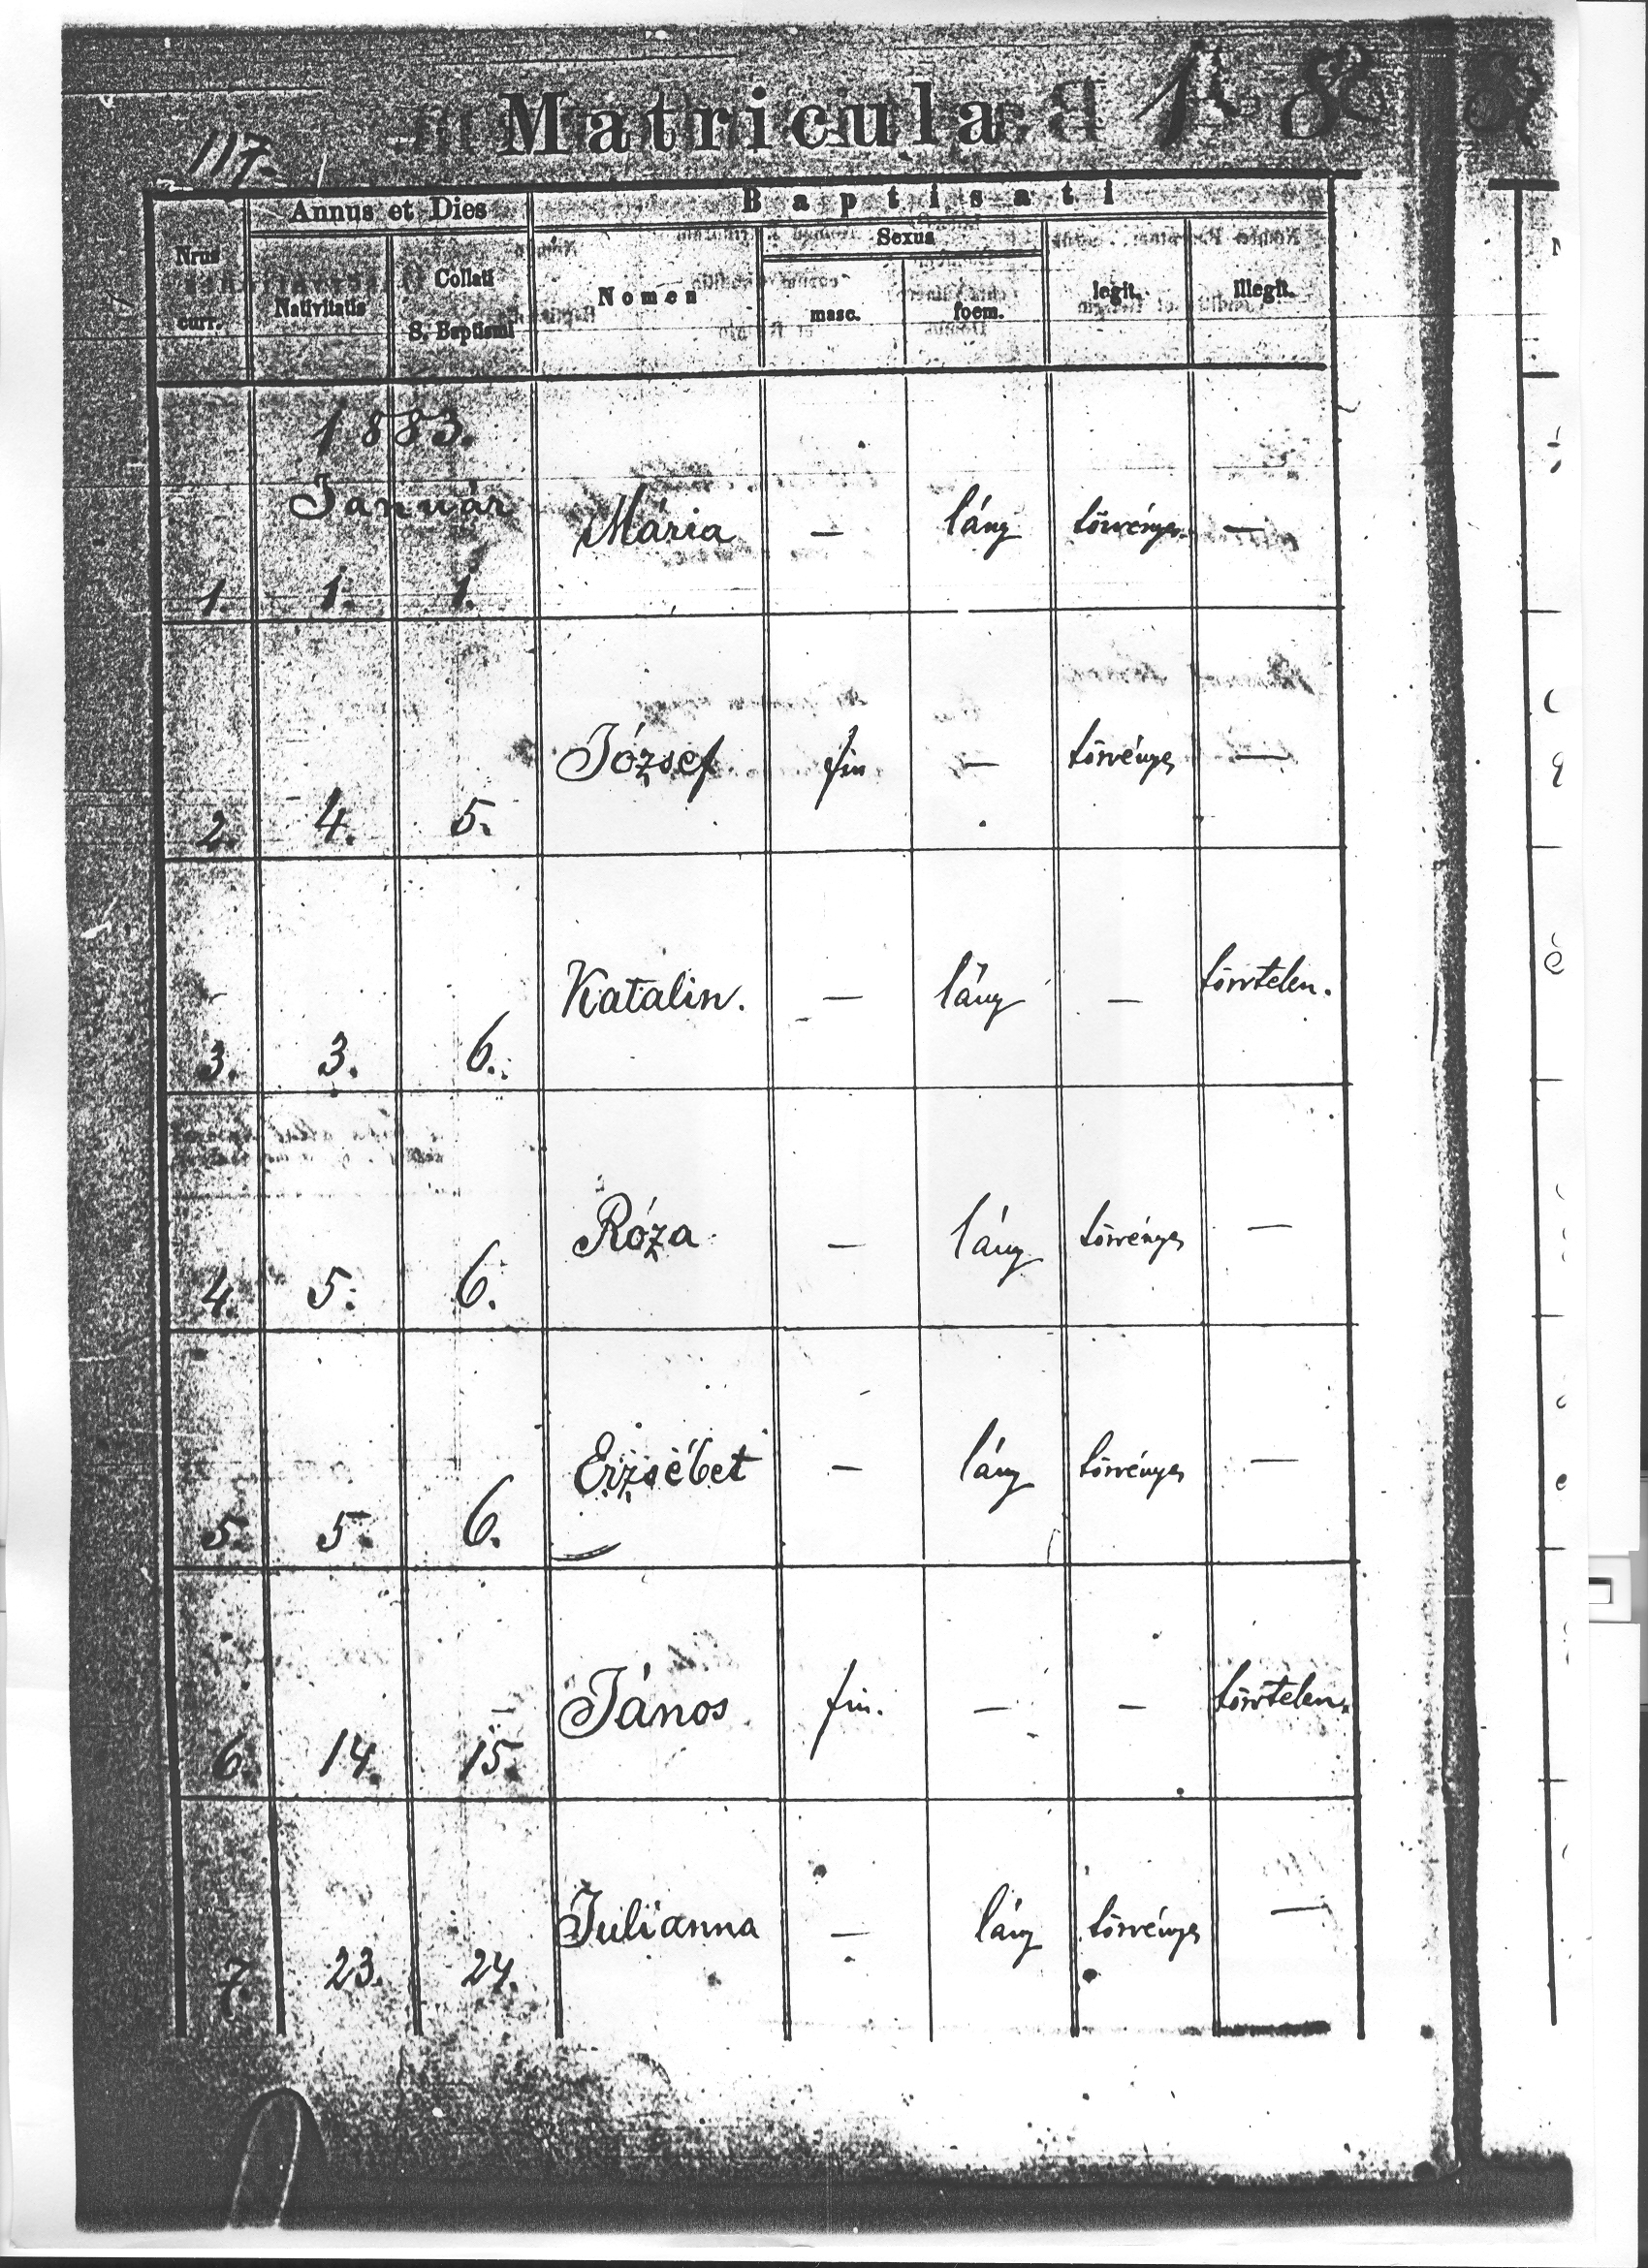 117.
Matricula 188
Annus et Dies
Baptisati
Nrus curr.
Nativitatis
Collati S. Baptismi
Nomen
Sexus
masc.
foem.
legit.
illegit.
1883.
Január
1. 1. 1. Mária — lány törvényes —
2. 4. 5. József fiu — törvényes —
3. 3. 6. Katalin. — lány — törvtelen.
4. 5. 6. Róza — lány törvényes —
5. 5. 6. Erzsébet — lány törvényes —
6. 14. 15. János fiu. — — törvtelen.
7. 23. 24. Julianna — lány törvényes —